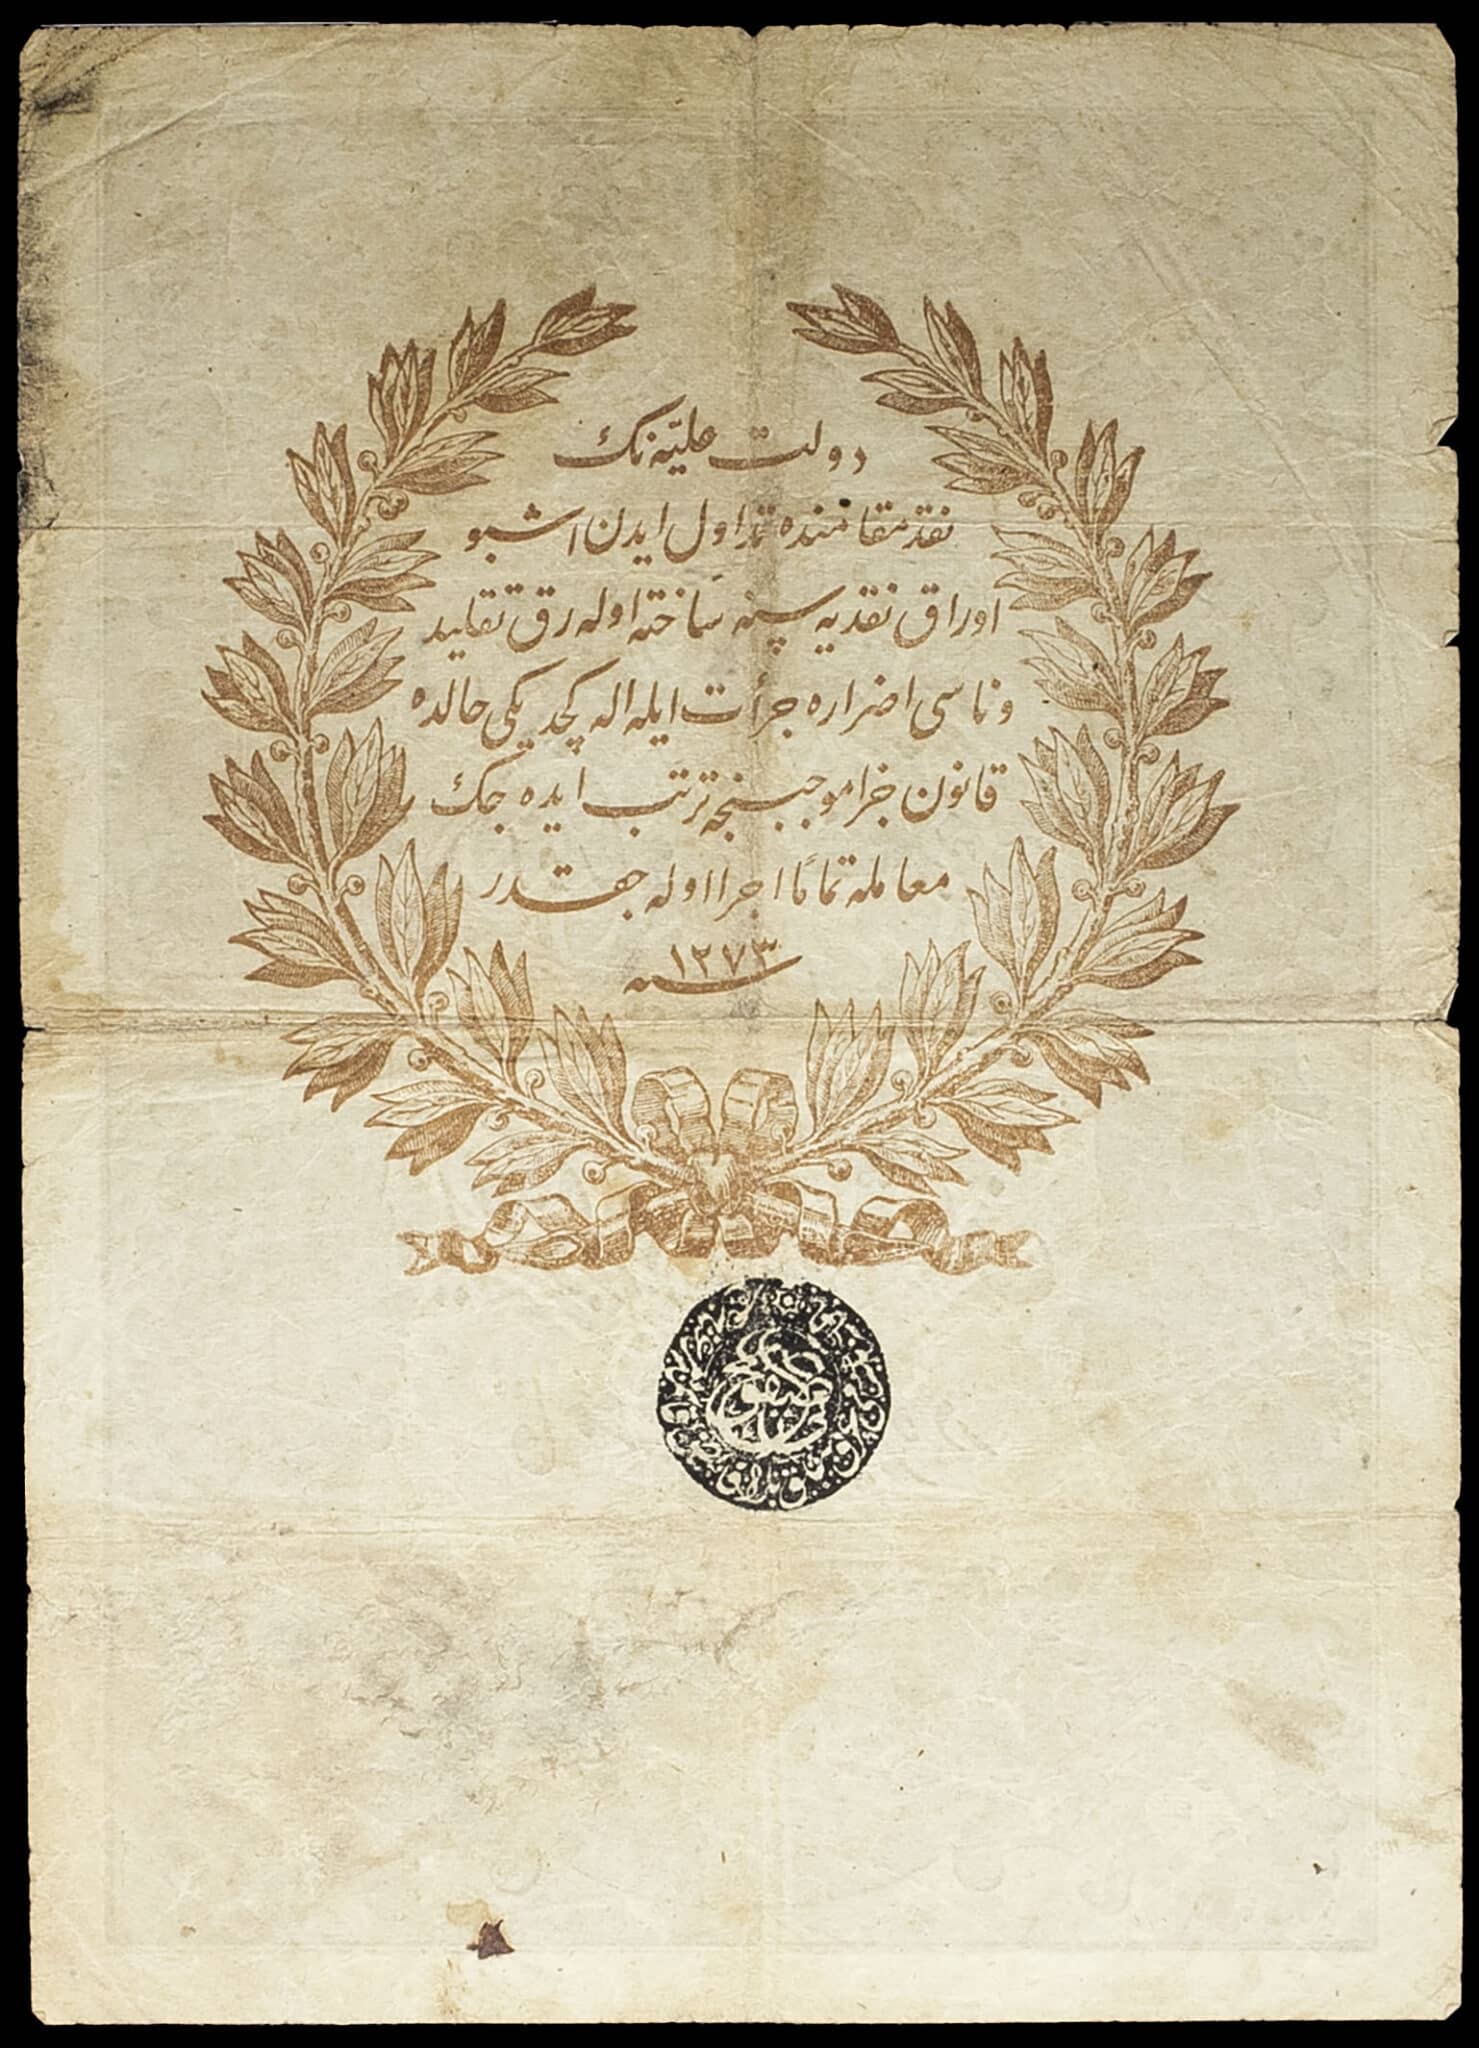 دولت علیّه نك
نقد مقامنده تداول ایدن اشبو
اوراق نقدیه سنه ساخته اوله رق تقلید
و ناسی اضراره جرأت ایله اله كچدیكی حالده
قانون جزا موجبنجه ترتب ایده جك
معامله تمامًا اجرا اوله جقدر
سنه ١٢٧٣